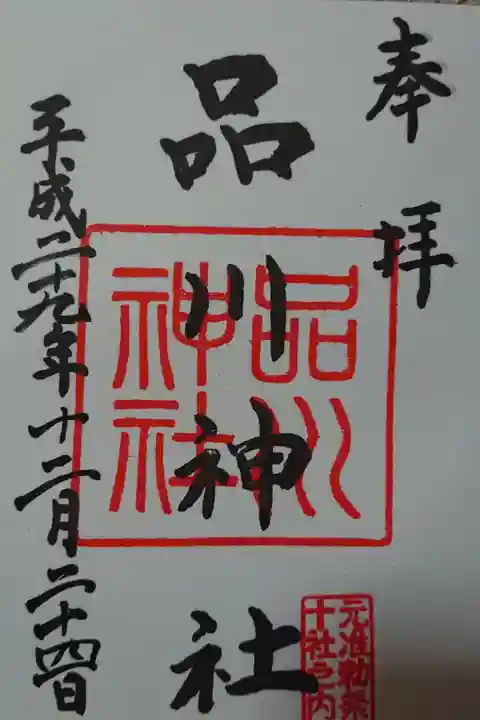 奉拝
品川神社
平成二十九年十二月二十四日
品川
神社
元准勅祭
十社之内